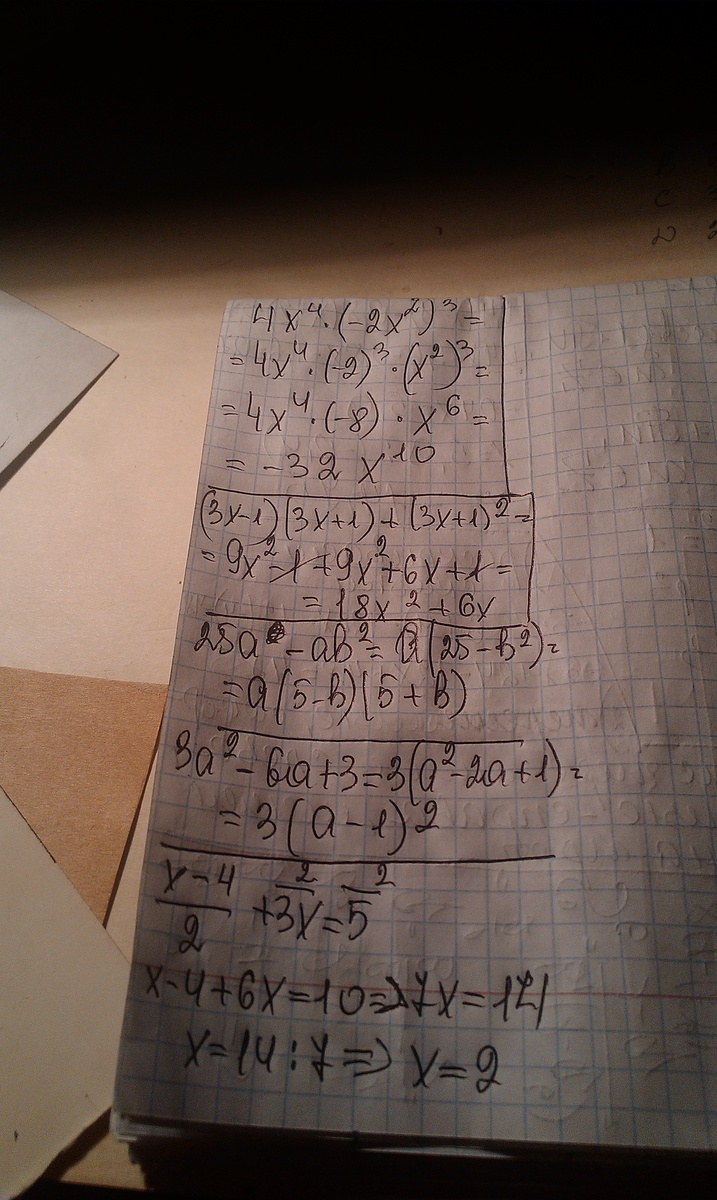 4x⁴·(-2x²)³=
=4x⁴·(-2)³·(x²)³=
=4x⁴·(-8)·x⁶=
=-32x¹⁰
(3x-1)(3x+1)+(3x+1)²=
=9x²-1+9x²+6x+1=
=18x²+6x
25a-ab²=a(25-b²)=
=a(5-b)(5+b)
3a²-6a+3=3(a²-2a+1)=
=3(a-1)²
(x-4)/2 + 3x (2) = 5 (2)
x-4+6x=10=>7x=14
x=14:7=>x=2